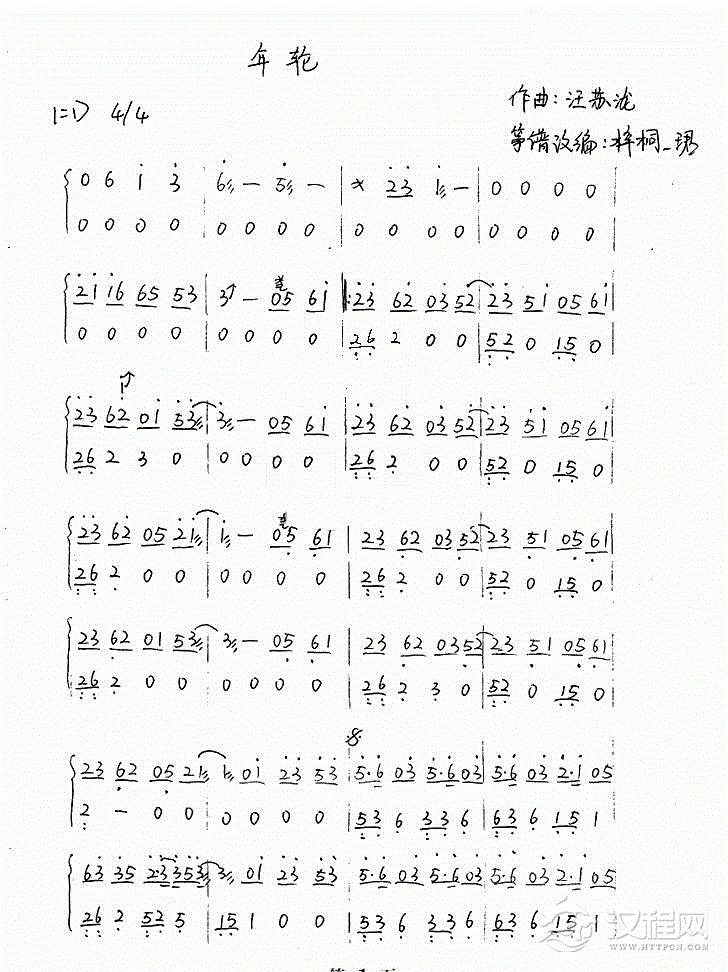 年轮
1=D 4/4
作曲:汪苏泷
筝谱改编:梓桐_珺
0 6 1 3 6 — 5 — × 23 1 — 0 0 0 0
0 0 0 0 0 0 0 0 0 0 0 0 0 0 0 0
21 16 65 53 3 — 05 61 23 62 03 52 23 51 05 61
0 0 0 0 0 0 0 0 26 2 0 0 52 0 15 0
23 62 01 53 3 — 05 61 23 62 03 52 23 51 05 61
26 2 3 0 0 0 0 0 26 2 0 0 52 0 15 0
23 62 05 21 1 — 05 61 23 62 03 52 23 51 05 61
26 2 0 0 0 0 0 0 26 2 0 0 52 0 15 0
23 62 01 53 3 — 05 61 23 62 03 52 23 51 05 61
26 2 0 0 0 0 0 0 26 2 3 0 52 0 15 0
23 62 05 21 1 01 23 53 5·6 03 5·6 03 5·6 03 2·1 05
2 — 0 0 0 0 0 0 53 6 33 6 63 6 15 1
63 35 2·3 353 3 01 23 53 5·6 03 5·6 03 5·6 03 2·1 05
26 2 52 5 15 1 0 0 53 6 33 6 63 6 15 1
汉程网
WWW.HTTPCN.COM